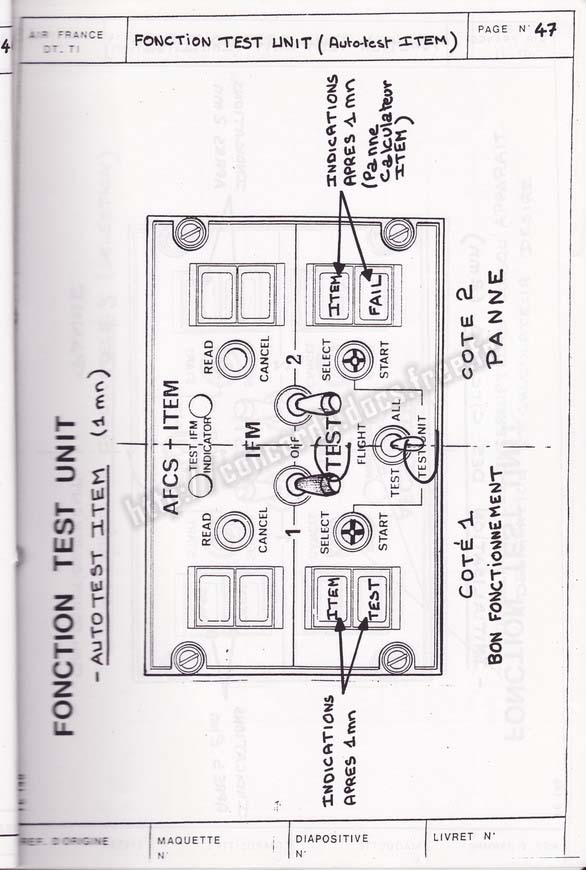 AIR FRANCE
DT. TI
FONCTION TEST UNIT (Auto-test ITEM)
PAGE N° 47
FONCTION TEST UNIT
- AUTOTEST ITEM (1mn)
AFCS - ITEM
TEST IFM
INDICATOR
READ
CANCEL
READ
CANCEL
IFM
1
OFF
2
TEST
SELECT
START
SELECT
START
FLIGHT
TEST
ALL
TEST UNIT
ITEM
TEST
ITEM
FAIL
INDICATIONS
APRES 1mn
INDICATIONS
APRES 1mn
(Panne
Calculateur
ITEM)
COTÉ 1
BON FONCTIONNEMENT
COTE 2
PANNE
REF. D'ORIGINE
MAQUETTE
N°
DIAPOSITIVE
N°
LIVRET N°